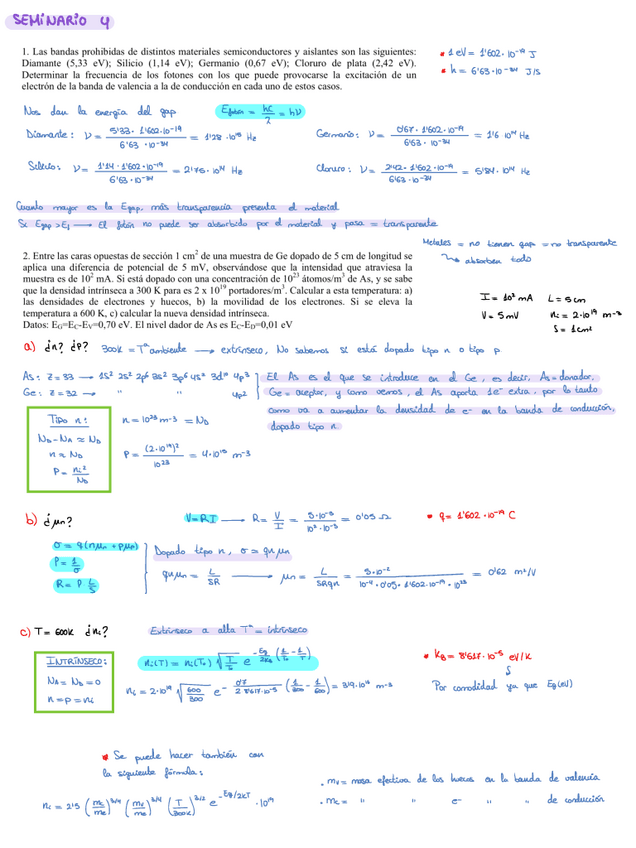 SEMINARIO 4
1. Las bandas prohibidas de distintos materiales semiconductores y aislantes son las siguientes:
Diamante (5,33 eV); Silicio (1,14 eV); Germanio (0,67 eV); Cloruro de plata (2,42 eV).
Determinar la frecuencia de los fotones con los que puede provocarse la excitación de un
electrón de la banda de valencia a la de conducción en cada uno de estos casos.
* 1 eV = 1'602·10⁻¹⁹ J
* h = 6'63·10⁻³⁴ J/S
Nos dan la energía del gap
E fotón = hc/2 = hν
Diamante: ν = 5'33·1'602·10⁻¹⁹ / 6'63·10⁻³⁴ = 1'28·10¹⁵ Hz
Germanio: ν = 0'67·1'602·10⁻¹⁹ / 6'63·10⁻³⁴ = 1'6 10¹⁴ Hz
Silicio: ν = 1'14·1'602·10⁻¹⁹ / 6'63·10⁻³⁴ = 2'75·10¹⁴ Hz
Cloruro: ν = 2'42·1'602·10⁻¹⁹ / 6'63·10⁻³⁴ = 5'84·10¹⁴ Hz
Cuanto mayor es la Egap, más transparencia presenta el material
Si Egap > Ef → El fotón no puede ser absorbido por el material y pasa = transparente
Metales = no tienen gap = no transparente
absorben todo
2. Entre las caras opuestas de sección 1 cm² de una muestra de Ge dopado de 5 cm de longitud se
aplica una diferencia de potencial de 5 mV, observándose que la intensidad que atraviesa la
muestra es de 10² mA. Si está dopado con una concentración de 10²³ átomos/m³ de As, y se sabe
que la densidad intrínseca a 300 K para es 2 x 10¹⁹ portadores/m³. Calcular a esta temperatura: a)
las densidades de electrones y huecos, b) la movilidad de los electrones. Si se eleva la
temperatura a 600 K, c) calcular la nueva densidad intrínseca.
Datos: EG=EC-EV=0,70 eV. El nivel dador de As es EC-ED=0,01 eV
I = 10² mA L = 5 cm
V = 5 mV ni = 2·10¹⁹ m⁻³
S = 1 cm²
a) ¿n? ¿p? 300K = Tª ambiente → extrínseco, No sabemos si está dopado tipo n o tipo p.
As: Z = 33 → 1s² 2s² 2p⁶ 3s² 3p⁶ 4s² 3d¹⁰ 4p³
Ge: Z = 32 → " " 4p²
El As es el que se introduce en el Ge, es decir, As = donador,
Ge = aceptor, y como vemos, el As aporta 1e⁻ extra. por lo tanto
como va a aumentar la densidad de e⁻ en la banda de conducción,
dopado tipo n.
Tipo n:
ND - NA ≈ ND
n ≈ ND
P = ni²/ND
n = 10²³ m⁻³ = ND
P = (2·10¹⁹)² / 10²³ = 4·10¹⁵ m⁻³
b) ¿μn?
V = RI → R = V/I = 5·10⁻³ / 10²·10⁻³ = 0'05 Ω
* q = 1'602·10⁻¹⁹ C
σ = q(nμn + pμp)
ρ = 1/σ
R = ρ L/S
Dopado tipo n, σ = qnμn
qnμn = L/SR → μn = L/SRqn = 5·10⁻² / 10⁻⁴·0'05·1'602·10⁻¹⁹·10²³ = 0'62 m²/V
c) T = 600K ¿ni?
Extrínseco a alta Tª = intrínseco
INTRÍNSECO:
NA = ND = 0
n = p = ni
ni(T) = ni(T₀) √(T/T₀) e^(-Eg/2KB (1/T - 1/T₀))
* KB = 8'617·10⁻⁵ eV/K
Por comodidad ya que Eg(eV)
* Se puede hacer también con
la siguiente fórmula:
. mv = masa efectiva de los huecos en la banda de valencia
. mc = " " e⁻ " " de conducción